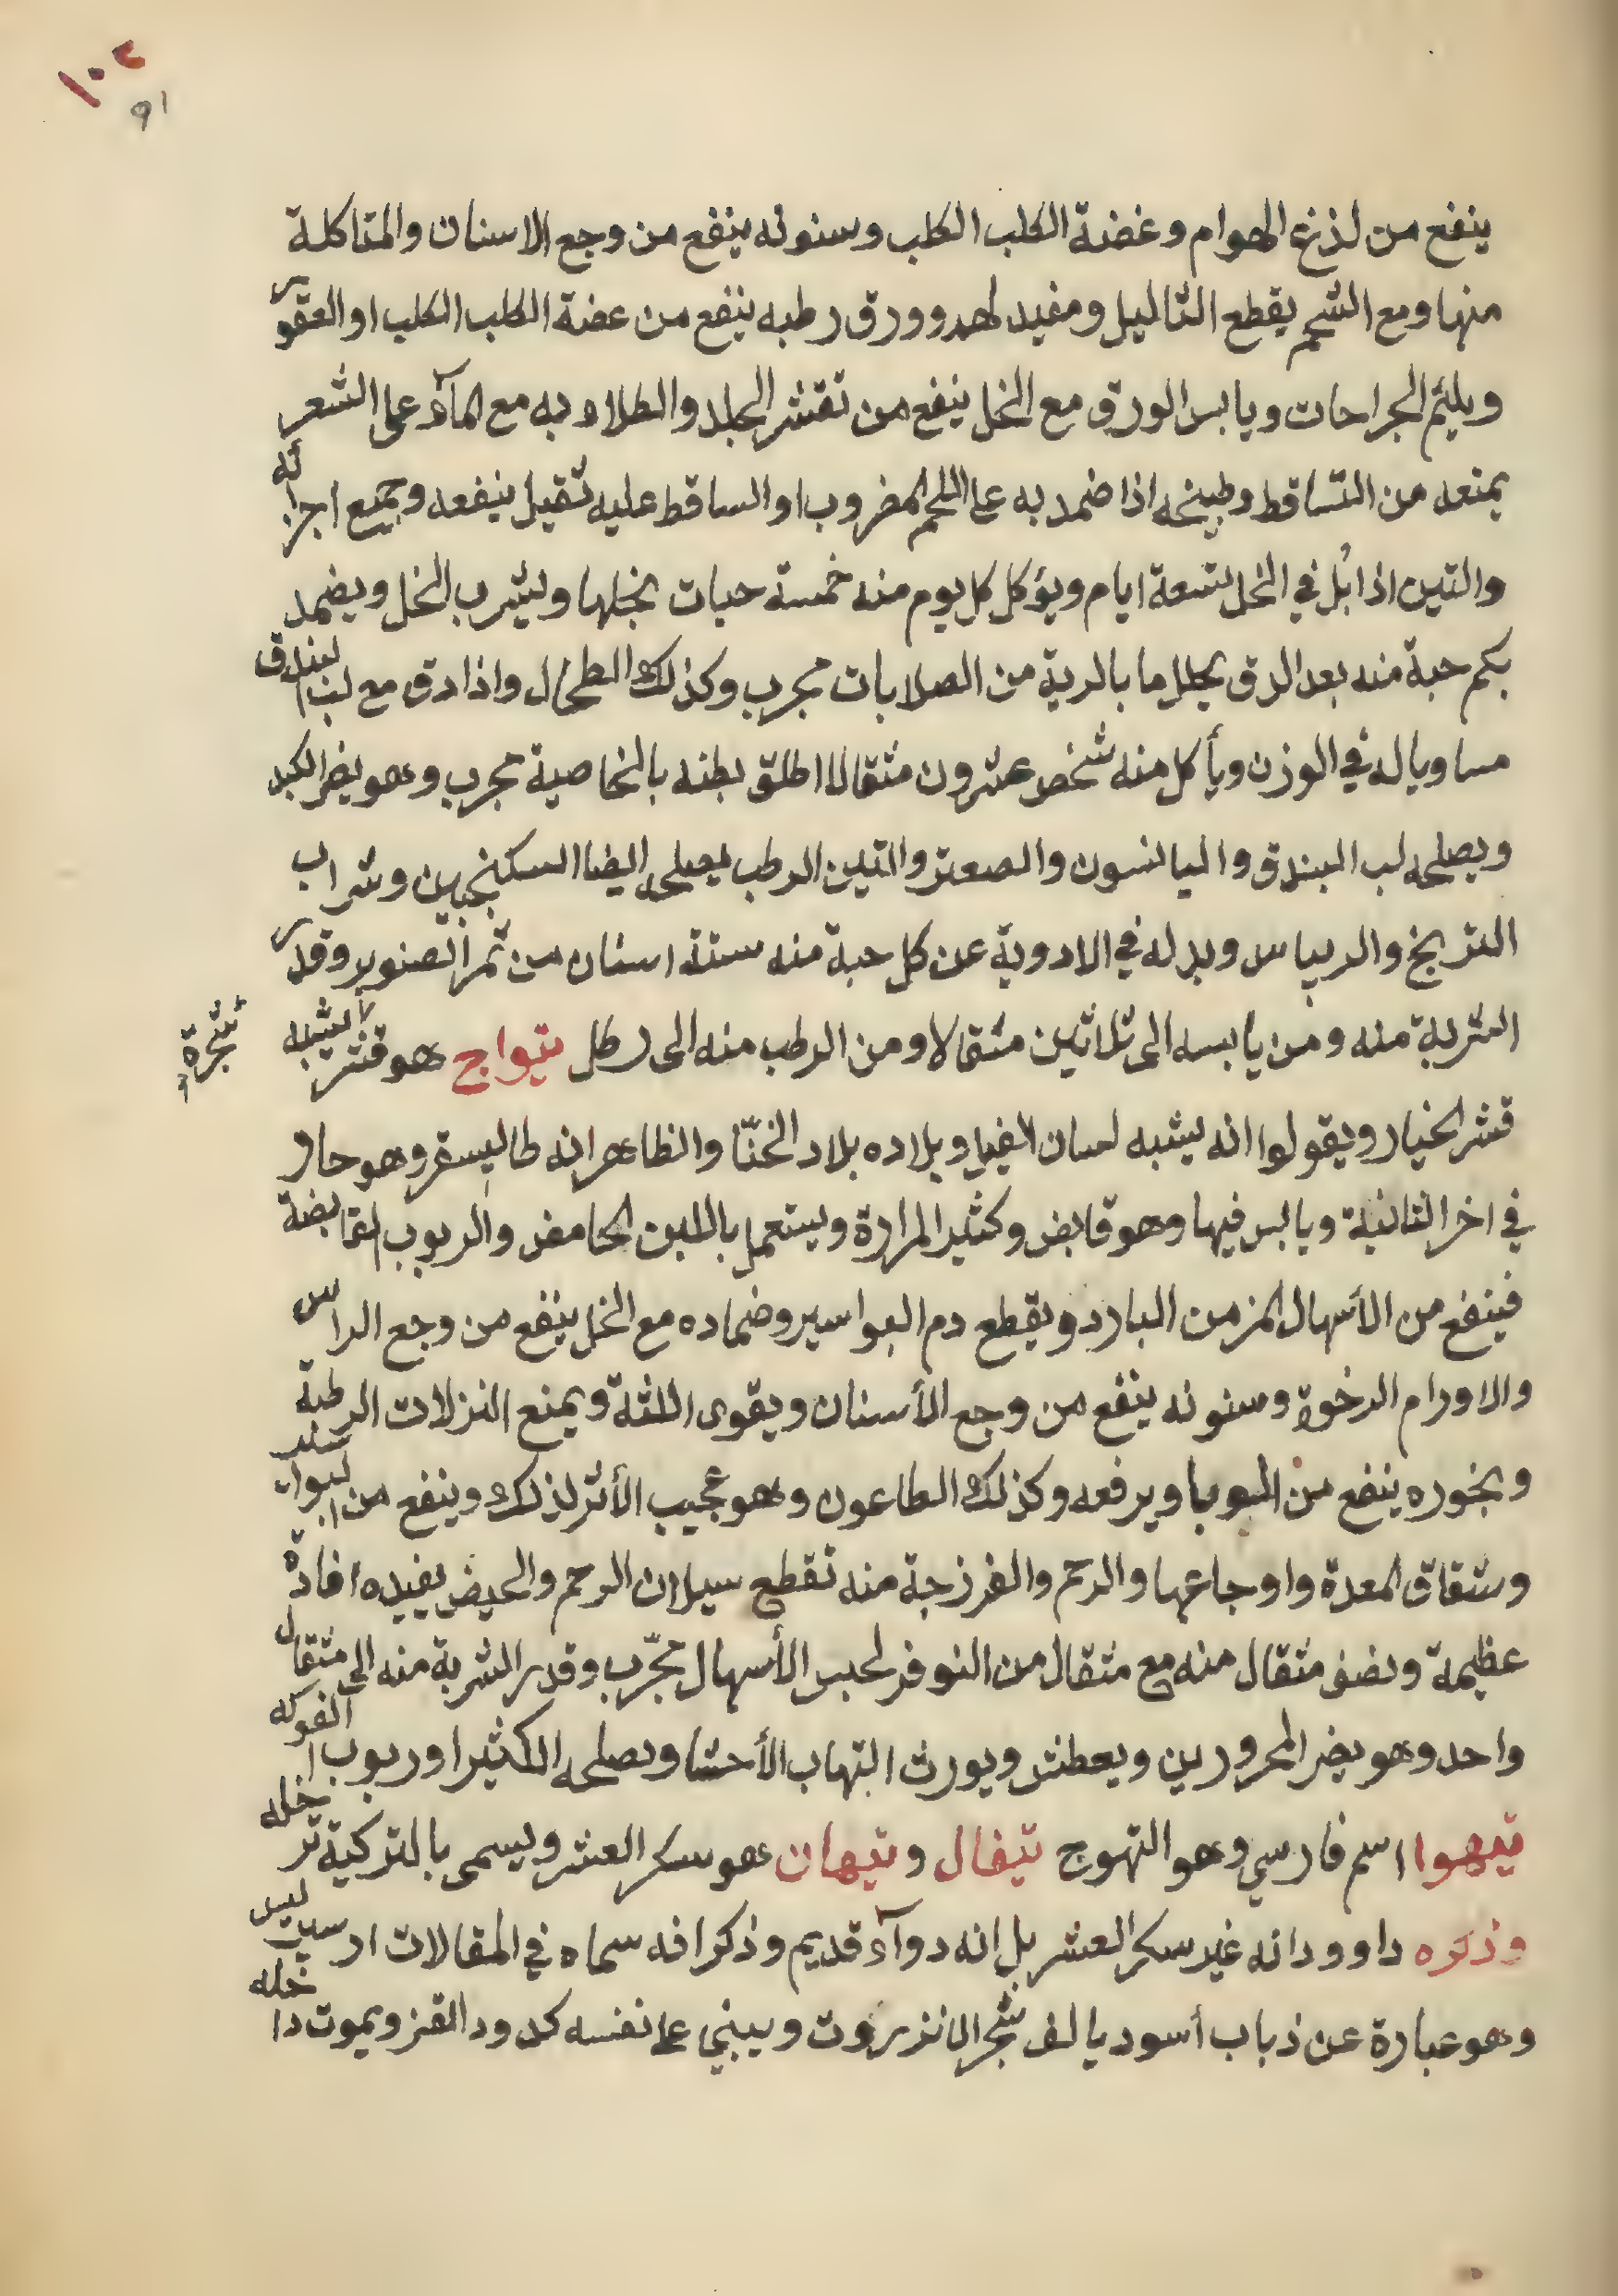 ١٠٢
٩١
ينفع من لذع الهوام وغضة الكلب الكلب وسنونه ينفع من وجع الاسنان والمتاكلة
منها ومع الشحم يقطع الثاليل ومفيد لهم وورق رطبه ينفع من عضة الكلب الكلب او العقر
ويلئم الجراحات ويابس الورق مع الخل ينفع من تقشر الجلد والطلاء به مع المآء على الشعر
يمنعه من التساقط وطبيخه اذا ضمد به على اللحم المضروب او الساقط عليه ثقيل ينفعه وجميع اجزائه
والتين اذا بُل في الخل تسعة ايام ويؤكل كل يوم منه خمسة حبات بخلها ويشرب الخل ويضمد
بكم حبة منه بعد الدق يحلل ما بالرية من الصلابات مجرب وكذلك الطحال واذا دق مع لب البندق
مساويا له في الوزن ويأكل منه شخص عشرون مثقالا اطلق بطنه بالخاصية مجرب وهو يضر الكبد
ويصلحه لب البندق واليانسون والصعتر والتين الرطب يصلحه ايضا السكنجبين وشراب
التريخ والريباس وبدله في الادوية عن كل حبة منه ستة اسنان من ثمر الصنوبر وقدر
الشربة منه ومن يابسه الى ثلاثين مثقالا ومن الرطب منه الى رطل تيواج هو قشر شجرة يشبه
قشر الخيار ويقولوا انه يشبه لسان الفيل وبلاده بلاد الخنّا والظاهر انه طاليسقر وهو حار
في اخر الثانية ويابس فيها وهو قابض وكثير المرارة ويستعمل باللبن الحامض والربوب القابضة
فينفع من الأسهال المزمن البارد ويقطع دم البواسير وضماده مع الخل ينفع من وجع الراس
والاورام الرخوة وسنونه ينفع من وجع الأسنان ويقوى اللثة ويمنع النزلات الرطبة
وبخوره ينفع من الوبا ويرفعه وكذلك الطاعون وهو عجيب الأثر لذلك وينفع من البواسير
وشقاق المعدة واوجاعها والرحم والفرزجة منه تقطع سيلان الرحم والحيض يفيده افادة
عظيمة ونصف مثقال منه مع مثقال من النوفر لحبس الأسهال مجرّب وقدر الشربة منه الى مثقال
واحد وهو يضر المحرورين ويعطش ويورث التهاب الأحشا ويصلحه الكثيرا وربوب الفوكه
تيهوا اسم فارسي وهو التهوج تيغال وتيهان هو سكر العشر ويسمى بالتركية تر خله
وذكره داوود انه غير سكر العشر بل انه دوآء قديم وذكرا فه سماه في المقالات ار سيلس
وهو عبارة عن ذباب أسود يالف شجر الانذروت ويبني على نفسه كدود القز ويموت داخله